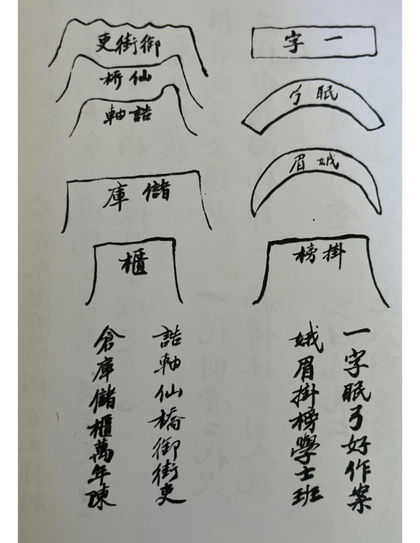 一字
眠弓
娥眉
掛榜
御街更
仙桥
誥軸
儲庫
櫃
一字眠弓好作案
娥眉掛榜學士班
誥軸仙橋御街更
倉庫儲櫃萬年陳